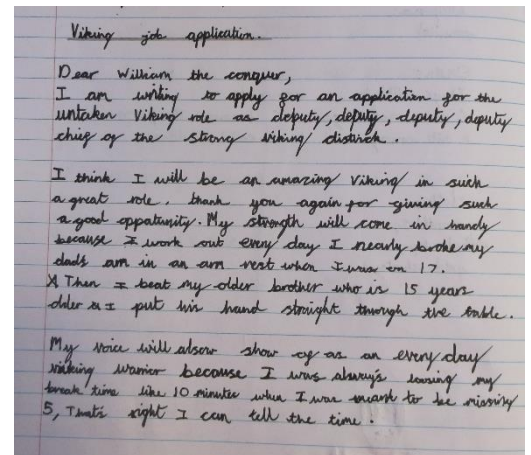 Viking job application.
Dear William the conquer,
I am writing to apply for an application for the
untaken Viking role as deputy, deputy, deputy, deputy
chief of the strong viking distinck.
I think I will be an amazing Viking in such
a great role. thank you again for giving such
a good oppatunity. My strength will come in handy
because I work out every day I nearly broke my
dads arm in an arm rest when I was 17.
Then I beat my older brother who is 15 years
older & I put his hand straight through the table.
My voice will alsow show of as an every day
viking warrior because I was always lousing my
break time like 10 minutes when I was meant to be missing
5, That's right I can tell the time.